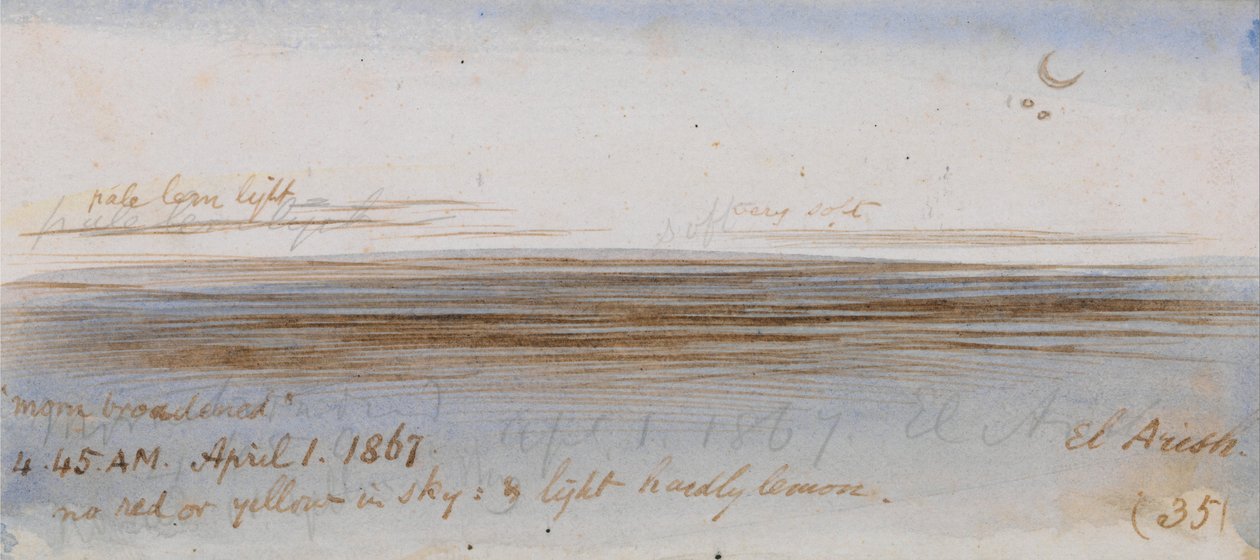 pale lem light
soft very soft
"morn broadened"
El Arish.
4.45 AM. April 1. 1867.
no red or yellow in sky: & light hardly lemon.
(35)
April 1. 1867. El Arish